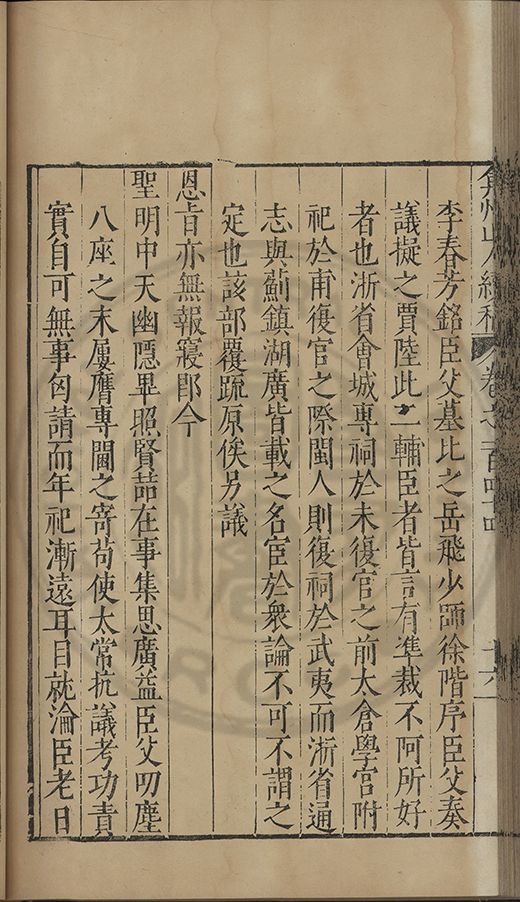 弇州山人續稿 卷之一百四十四 十六
李春芳銘臣父墓比之岳飛少師徐階序臣父奏
議擬之賈陸此二輔臣者皆言有準裁不阿所好
者也浙省會城專祠於未復官之前太倉學宮附
祀於甫復官之際閩人則復祠於武夷而浙省通
志與薊鎮湖廣皆載之名宦於衆論不可不謂之
定也該部覆疏原俟另議
恩旨亦無報寢卽今
聖明中天幽隱畢照賢喆在事集思廣益臣父叨塵
八座之末屢膺專閫之寄苟使太常抗議考功責
實自可無事匄請而年祀漸遠耳目就淪臣老日